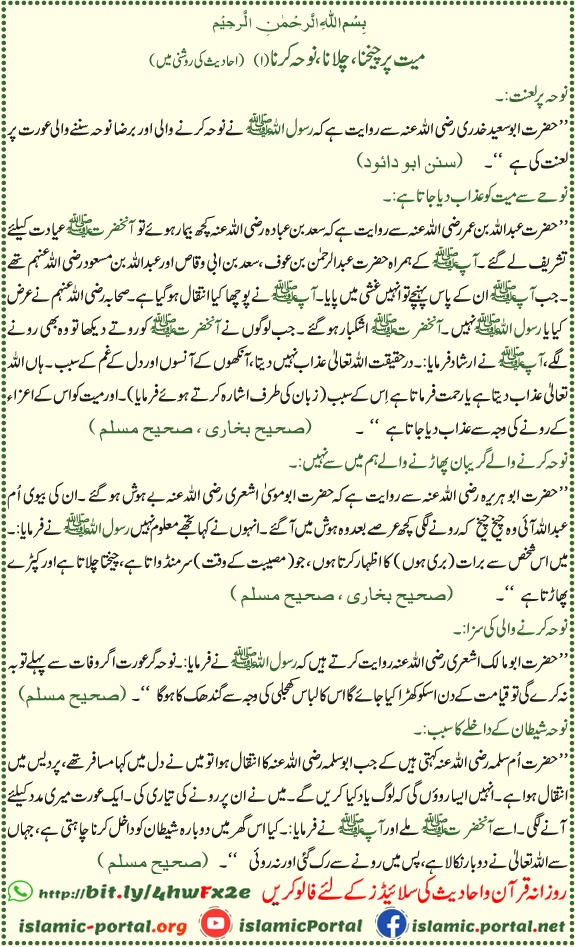 بِسْمِ اللهِ الرَّحْمٰنِ الرَّحِيْمِ
میت پر چیخنا، چلانا، نوحہ کرنا (۱) (احادیث کی روشنی میں)
نوحہ پر لعنت:۔
’’حضرت ابو سعید خدری رضی اللہ عنہ سے روایت ہے کہ رسول اللہ ﷺ نے نوحہ کرنے والی اور برضا نوحہ سننے والی عورت پر
لعنت کی ہے ‘‘۔ (سنن ابو دائود)
نوحے سے میت کو عذاب دیا جاتا ہے:۔
’’حضرت عبداللہ بن عمر رضی اللہ عنہ سے روایت ہے کہ سعد بن عبادہ رضی اللہ عنہ کچھ بیمار ہوئے تو آنحضرت ﷺ عیادت کیلئے
تشریف لے گئے ۔ آپ ﷺ کے ہمراہ حضرت عبدالرحمٰن بن عوف، سعد بن ابی وقاص اور عبداللہ بن مسعود رضی اللہ عنہم تھے
۔ جب آپ ﷺ ان کے پاس پہنچے تو انہیں غشی میں پایا۔ آپ ﷺ نے پوچھا کیا انتقال ہوگیا ہے۔ صحابہ رضی اللہ عنہم نے عرض
کیا یا رسول اللہ ﷺ نہیں۔ آنحضرت ﷺ اشکبار ہوگئے ۔ جب لوگوں نے آنحضرت ﷺ کو روتے دیکھا تو وہ بھی رونے
لگے، آپ ﷺ نے ارشاد فرمایا:۔ درحقیقت اللہ تعالیٰ عذاب نہیں دیتا، آنکھوں کے آنسوں اور دل کے غم کے سبب ۔ ہاں اللہ
تعالیٰ عذاب دیتا ہے یا رحمت فرماتا ہے اِس کے سبب (زبان کی طرف اشارہ کرتے ہوئے فرمایا)۔ اور میت کو اس کے اعزاء
کے رونے کی وجہ سے عذاب دیا جاتا ہے ‘‘ ۔ (صحیح بخاری ، صحیح مسلم )
نوحہ کرنے والے گریبان پھاڑنے والے ہم میں سے نہیں:۔
’’حضرت ابو ہریرہ رضی اللہ عنہ سے روایت ہے کہ حضرت ابو موسیٰ اشعری رضی اللہ عنہ بے ہوش ہوگئے ۔ ان کی بیوی اُم
عبداللہ آئی وہ چیخ چیخ کہ رونے لگی کچھ عرصے بعد وہ ہوش میں آگئے۔ انہوں نے کہا تجھے معلوم نہیں رسول اللہ ﷺ نے فرمایا:۔
میں اس شخص سے برات (بری ہوں) کا اظہار کرتا ہوں، جو (مصیبت کے وقت) سر منڈواتا ہے، چیختا چلاتا ہے اور کپڑے
پھاڑتا ہے ‘‘۔ (صحیح بخاری ، صحیح مسلم )
نوحہ کرنے والی کی سزا:۔
’’حضرت ابو مالک اشعری رضی اللہ عنہ روایت کرتے ہیں کہ رسول اللہ ﷺ نے فرمایا:۔ نوحہ گر عورت اگر وفات سے پہلے توبہ
نہ کرے گی تو قیامت کے دن اسکو کھڑا کیا جائے گا اس کا لباس کھجلی کی وجہ سے گندھک کا ہوگا ‘‘۔ (صحیح مسلم)
نوحہ شیطان کے داخلے کا سبب:۔
’’حضرت اُم سلمہ رضی اللہ عنہ کہتی ہیں کے جب ابو سلمہ رضی اللہ عنہ کا انتقال ہوا تو میں نے دل میں کہا مسافر تھے، پردیس میں
انتقال ہوا ہے۔ انہیں ایسا روؤں گی کہ لوگ یاد کیا کریں گے۔ میں نے ان پر رونے کی تیاری کی ۔ ایک عورت میری مدد کیلئے
آنے لگی۔ اسے آنحضرت ﷺ ملے اور آپ ﷺ نے فرمایا:۔ کیا اس گھر میں دوبارہ شیطان کو داخل کرنا چاہتی ہے، جہاں
سے اللہ تعالیٰ نے دوبار نکالا ہے، پس میں رونے سے رک گئی اور نہ روئی ‘‘۔ (صحیح مسلم )
روزانہ قرآن و احادیث کی سلائیڈز کے لئے فالو کریں http://bit.ly/4hwFx2e
islamic-portal.org islamicPortal islamic.portal.net